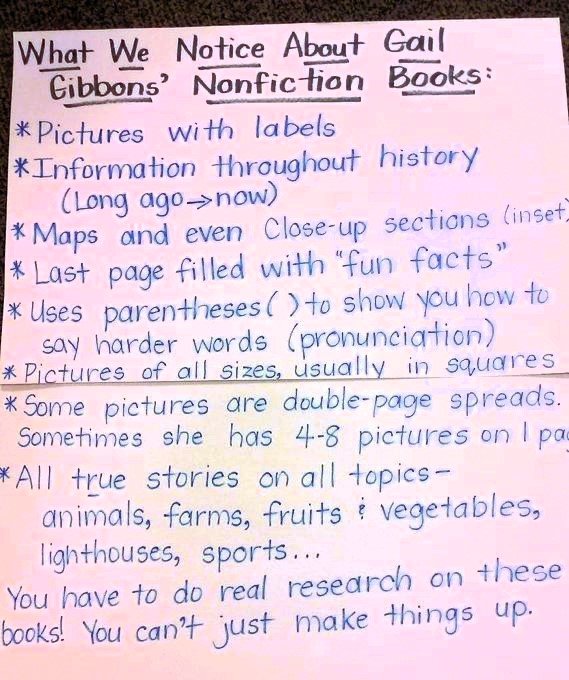 What We Notice About Gail
Gibbons' Nonfiction Books:
*Pictures with labels
*Information throughout history
(Long ago→now)
*Maps and even Close-up sections (inset)
*Last page filled with "fun facts"
*Uses parentheses( ) to show you how to
say harder words (pronunciation)
*Pictures of all sizes, usually in squares
*Some pictures are double-page spreads.
Sometimes she has 4-8 pictures on 1 pa
*All true stories on all topics-
animals, farms, fruits & vegetables,
lighthouses, sports...
You have to do real research on these
books! You can't just make things up.